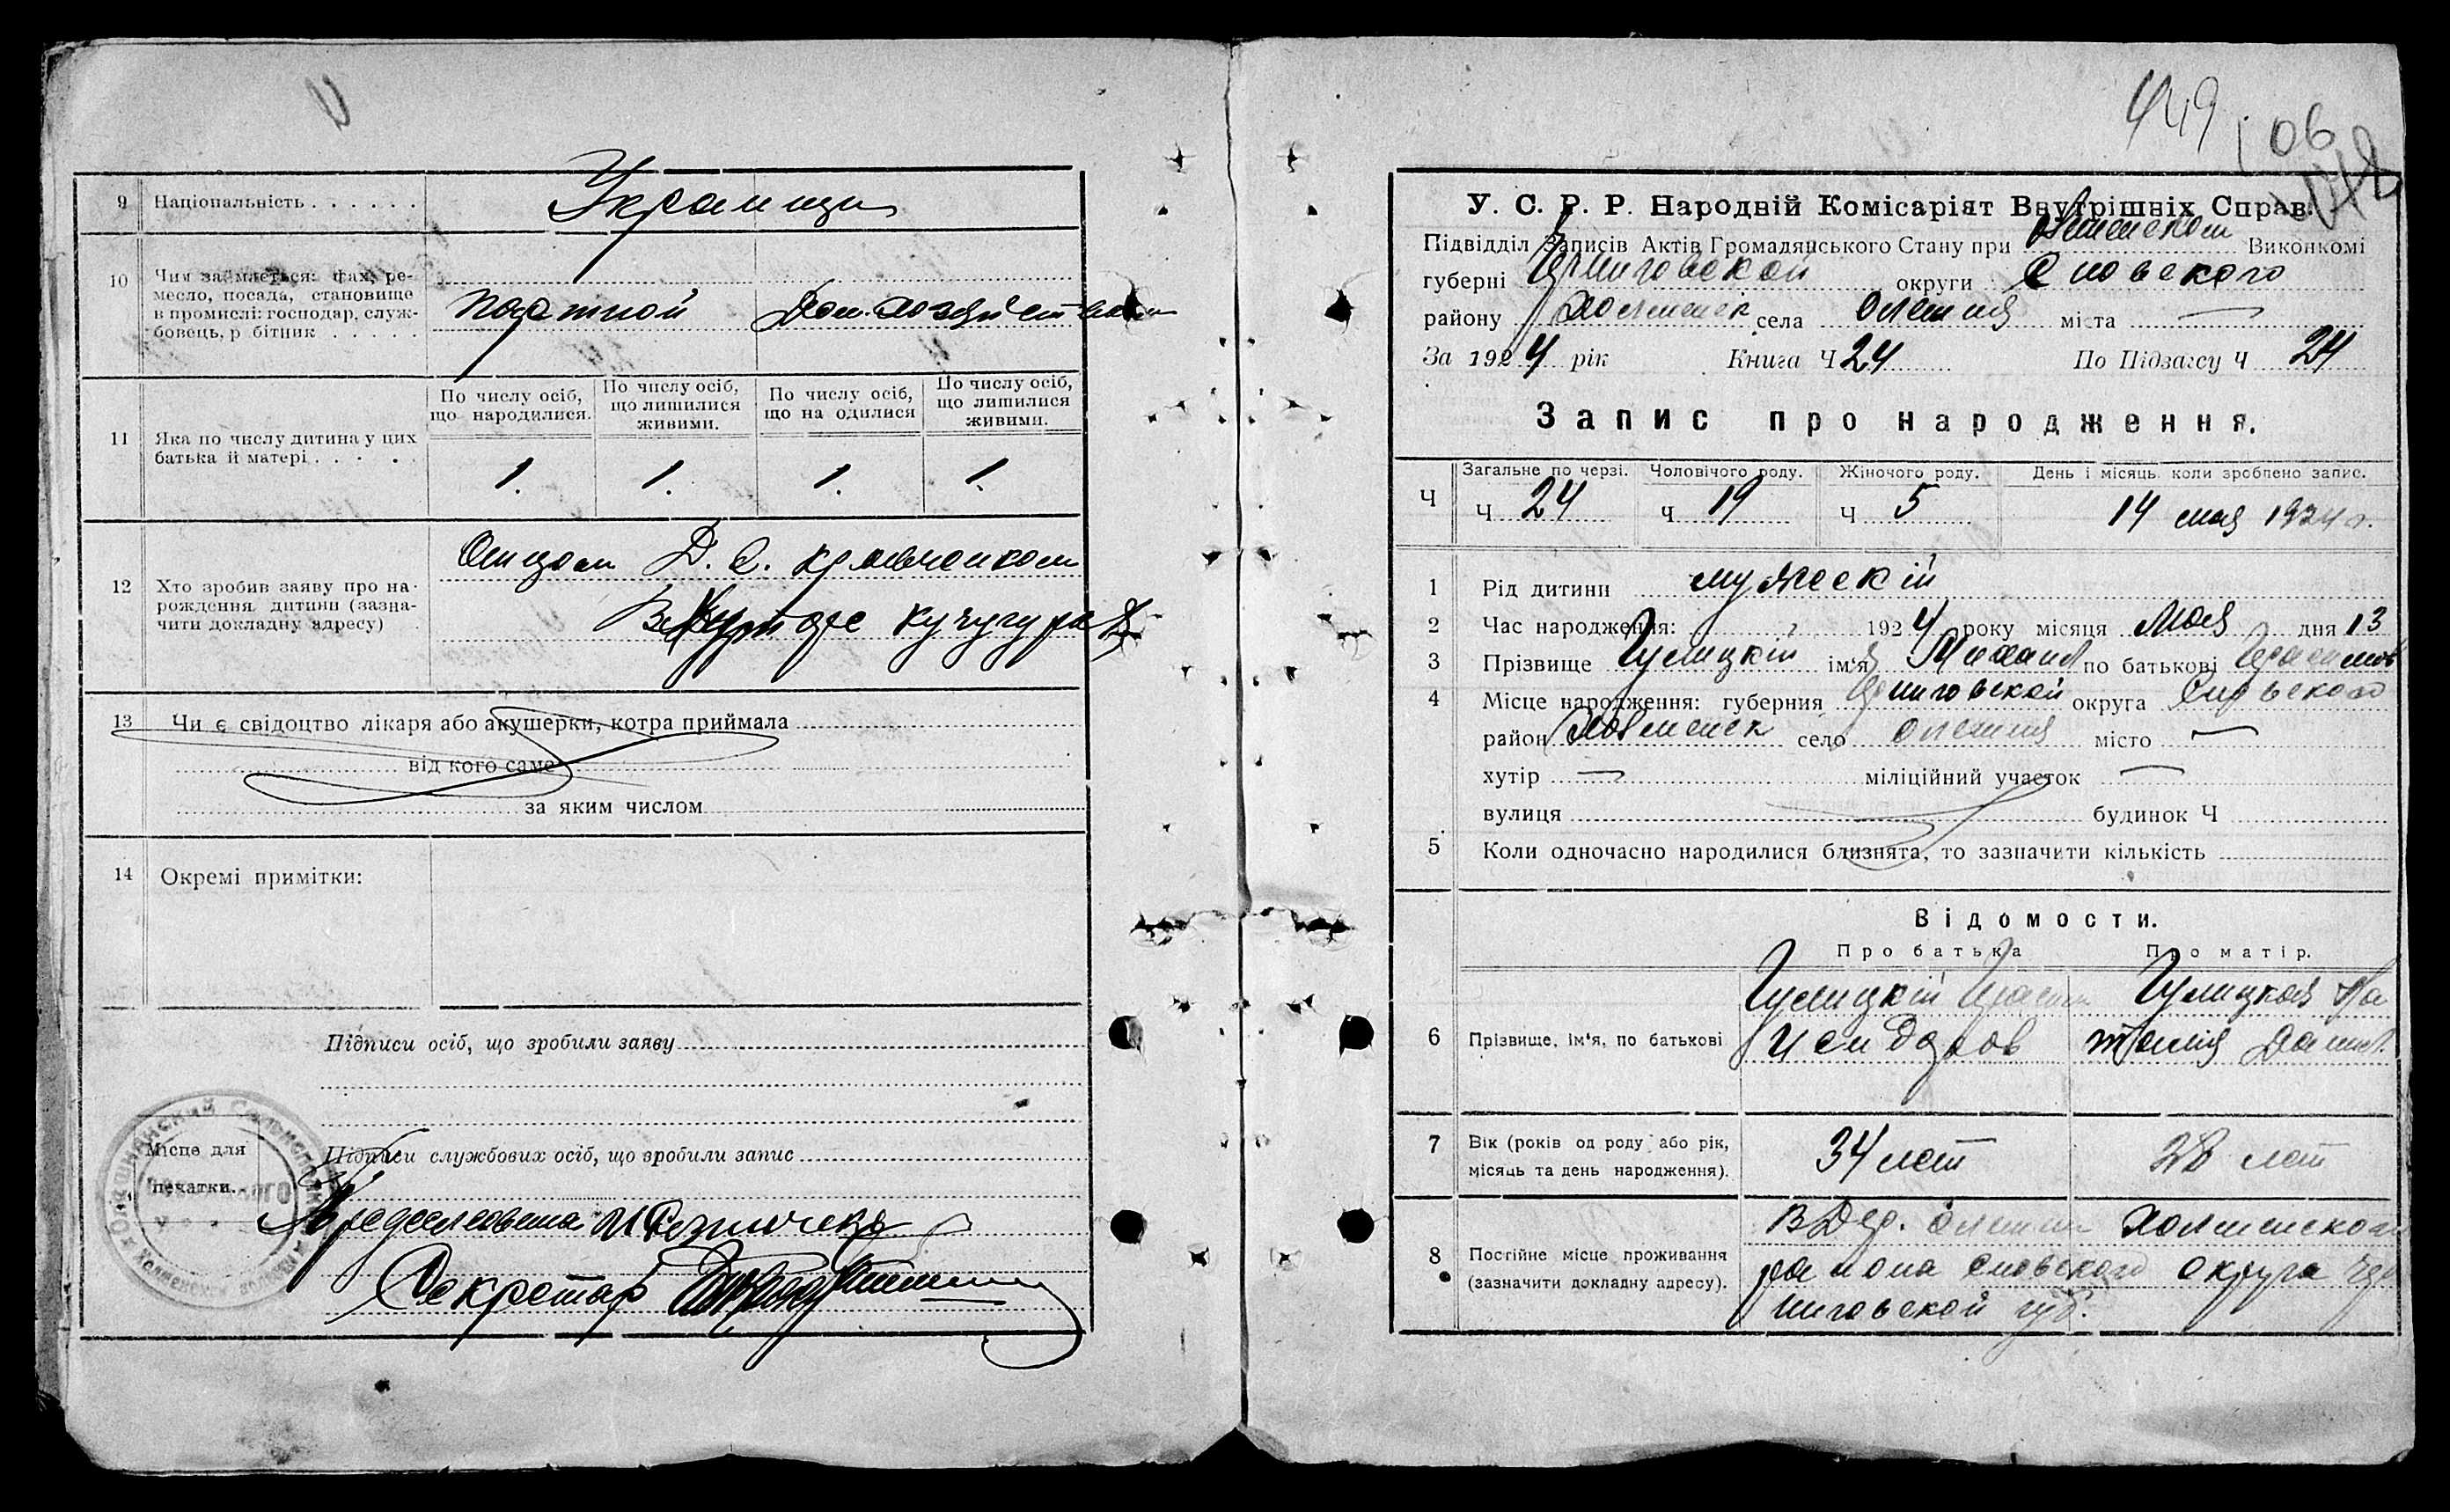 9 Національність . . . . . . Украинци
10 Чим займається: фах, ре-
месло, посада, становище
в промислі: господар, служ-
бовець, р бітник . . . . .
Дом. хозяйством
По числу осіб, що народилися.
По числу осіб, що лишилися живими.
По числу осіб, що на одилися
По числу осіб, що лишилися живими.
11 Яка по числу дитина у цих
батька й матері . . . . .
1. 1. 1. 1.
12 Хто зробив заяву про на-
рождення дитини (зазна-
чити докладну адресу)
Отцом Д. С.
13 Чи є свідоцтво лікаря або акушерки, котра приймала
від кого саме
за яким числом
14 Окремі примітки:
Підписи осіб, що зробили заяву
Місце для
печатки.
Підписи службових осіб, що зробили запис
Предсельсовета
Секретар
449
106
У. С. Р. Р. Народній Комісаріят Внутрішніх Справ.
Підвідділ Записів Актів Громадянського Стану при Виконкомі
губерні Черниговской округи Сновского
району Холменск села Олешня міста —
За 1924 рік Книга Ч 24 По Підзагсу Ч 24
Запис про народження.
Загальне по черзі. Чоловічого роду. Жіночого роду. День і місяць коли зроблено запис.
Ч Ч 24 Ч 19 Ч 5 14 мая 1924 г.
1 Рід дитини мужескій
2 Час народження: 1924 року місяця Мая дня 13
3 Прізвище Гулицкій ім'я Михаил по батькові Герасимов
4 Місце народження: губерния Черниговской округа Сновского
район Холменск село Олешня місто —
хутір — міліційний участок —
вулиця будинок Ч
5 Коли одночасно народилися близнята, то зазначити кількість
Відомости.
Про батька Про матір.
6 Прізвище, ім'я, по батькові
Гулицкій Герасим Гулицкая На
Исидоров талия Данил.
7 Вік (років од роду або рік,
місяць та день народження).
34 лет 28 лет
8 Постійне місце проживання
(зазначити докладну адресу).
В Дер. Олешни Холменского
района Сновского округа Чер
ниговской губ.